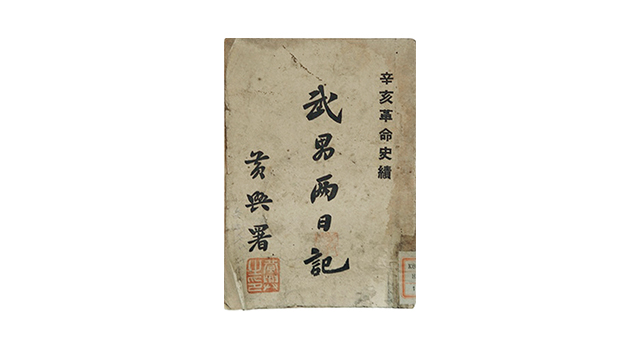 辛亥革命史續
武昌兩日記
黃興署